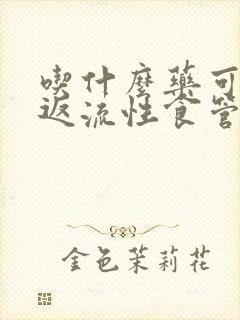 喫什麼藥可
返流性食管
金色茉莉花